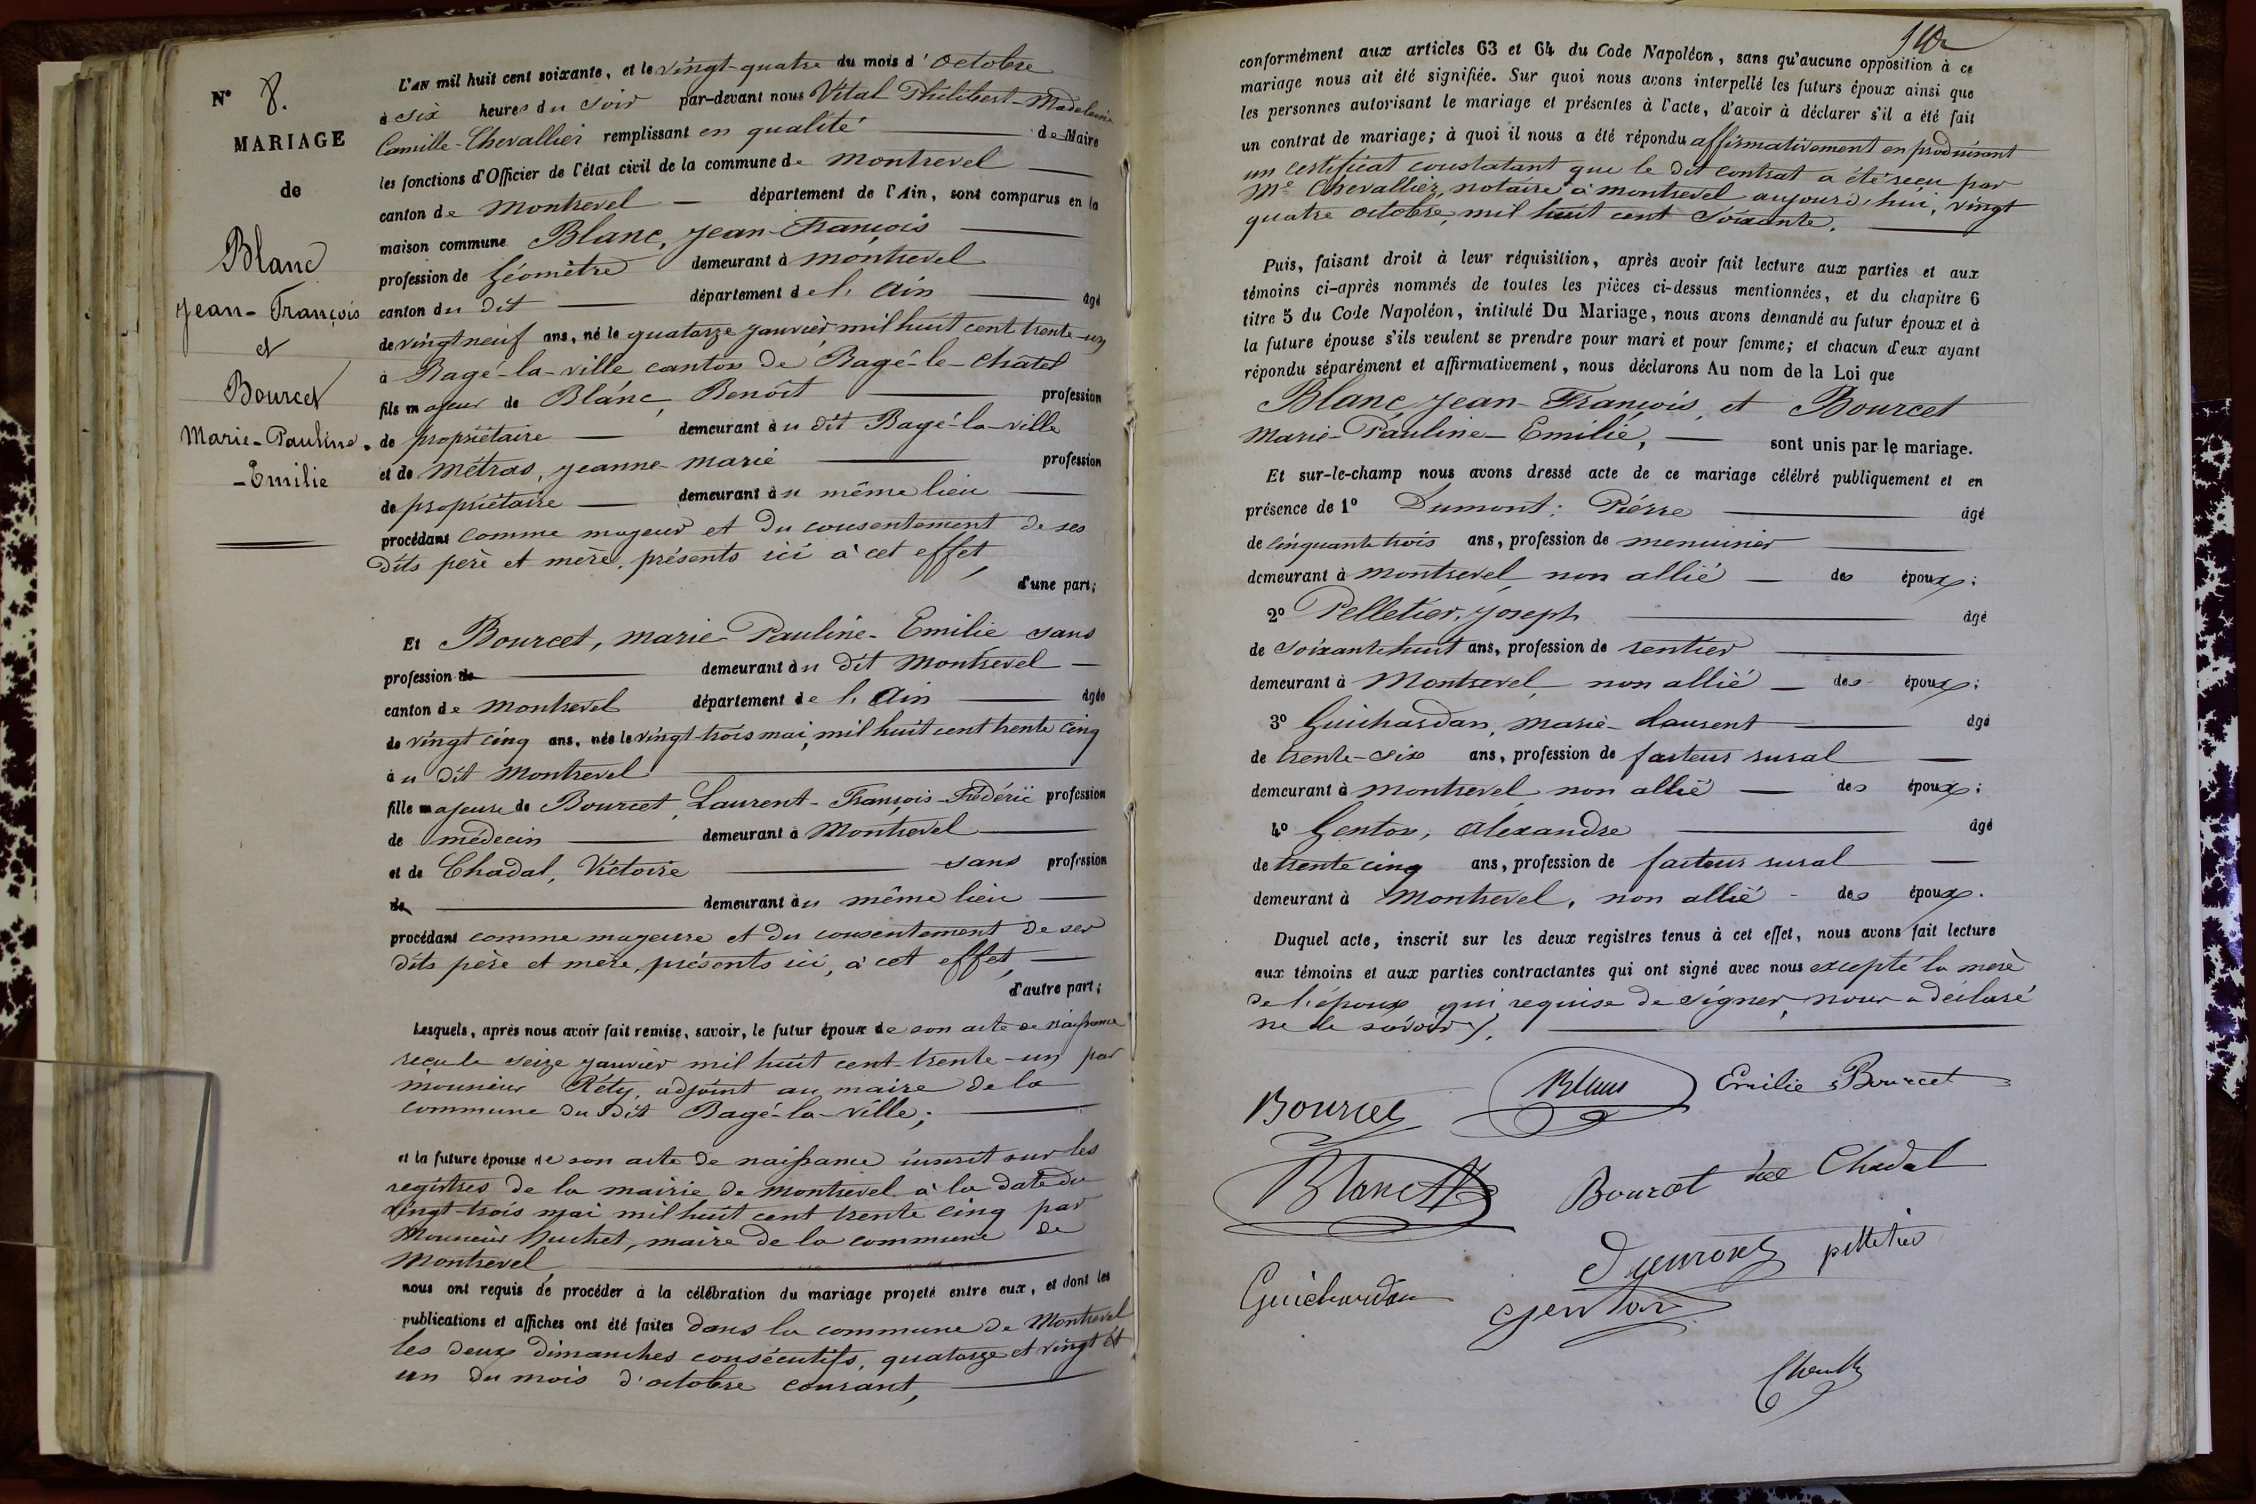 N° 8.
MARIAGE
de
Blanc
Jean-François
et
Bourcet
Marie-Pauline-
-Emilie
L'AN mil huit cent soixante, et le vingt-quatre du mois d'octobre
à six heures du soir par-devant nous Vital Philibert-Madeleine
Camille-Chevallier remplissant en qualité de Maire
les fonctions d'Officier de l'état civil de la commune de Montrevel
canton de Montrevel département de l'Ain, sont comparus en la
maison commune Blanc, Jean-François
profession de Géomètre demeurant à Montrevel
canton du dit département de l'Ain âgé
de vingt neuf ans, né le quatorze janvier mil huit cent trente-un
à Bagé-la-ville canton de Bagé-le-Chatel
fils majeur de Blanc, Benoît profession
de propriétaire demeurant au dit Bagé-la-ville
et de Métras, Jeanne-Marie profession
de propriétaire demeurant au même lieu
procédant comme mageur et du consentement de ses
dits père et mère, présents ici à cet effet,
d'une part;
Et Bourcet, Marie-Pauline-Emilie sans
profession de demeurant au dit Montrevel
canton de Montrevel département de l'Ain âgée
de vingt cinq ans, née le vingt-trois mai, mil huit cent trente cinq
au dit Montrevel
fille majeure de Bourcet, Laurent-François-Frédéric profession
de médecin demeurant à Montrevel
et de Chadal, Victoire sans profession
de demeurant au même lieu
procédant comme mageure et du consentement de ses
dits père et mère, présents ici, à cet effet,
d'autre part;
Lesquels, après nous avoir fait remise, savoir, le futur époux de son acte de naissance
reçu le seize janvier mil huit cent trente-un par
monsieur Réty, adjoint au maire de la
commune du dit Bagé-la-Ville;
et la future épouse de son acte de naissance inscrit sur les
registres de la mairie de Montrevel à la date du
vingt-trois mai mil huit cent trente cinq par
Monsieur Huchet, maire de la commune de
Montrevel
nous ont requis de procéder à la célébration du mariage projeté entre eux, et dont les
publications et affiches ont été faites dans la commune de Montrevel
les deux dimanches consécutifs, quatorze et vingt et
un du mois d'octobre courant,
conformément aux articles 63 et 64 du Code Napoléon, sans qu'aucune opposition à ce
mariage nous ait été signifiée. Sur quoi nous avons interpellé les futurs époux ainsi que
les personnes autorisant le mariage et présentes à l'acte, d'avoir à déclarer s'il a été fait
un contrat de mariage; à quoi il nous a été répondu affirmativement en produisant
un certificat constatant que le dit contrat a été reçu par
Me Chevallier, notaire à Montrevel aujourd'hui, vingt
quatre octobre, mil huit cent soixante.
Puis, faisant droit à leur réquisition, après avoir fait lecture aux parties et aux
témoins ci-après nommés de toutes les pièces ci-dessus mentionnées, et du chapitre 6
titre 5 du Code Napoléon, intitulé Du Mariage, nous avons demandé au futur époux et à
la future épouse s'ils veulent se prendre pour mari et pour femme; et chacun d'eux ayant
répondu séparément et affirmativement, nous déclarons Au nom de la Loi que
Blanc, Jean-François, et Bourcet
Marie-Pauline-Emilie, sont unis par le mariage.
Et sur-le-champ nous avons dressé acte de ce mariage célébré publiquement et en
présence de 1° Dumont, Pierre âgé
de cinquante trois ans, profession de menuisier
demeurant à Montrevel, non allié des époux;
2° Pelletier, Joseph âgé
de soixante huit ans, profession de rentier
demeurant à Montrevel non allié des époux;
3° Guichardan, Marie-Laurent âgé
de trente-six ans, profession de facteur rural
demeurant à Montrevel non allié des époux;
4° Genton, Alexandre âgé
de trente cinq ans, profession de facteur rural
demeurant à Montrevel, non allié des époux.
Duquel acte, inscrit sur les deux registres tenus à cet effet, nous avons fait lecture
aux témoins et aux parties contractantes qui ont signé avec nous excepté la mère
de l'époux qui, requise de signer, nous a déclaré
ne le savoir.
Bourcet Blanc Emilie Bourcet
Blanc Bourcet née Chadal
Dumont pelletier
Guichardan genton